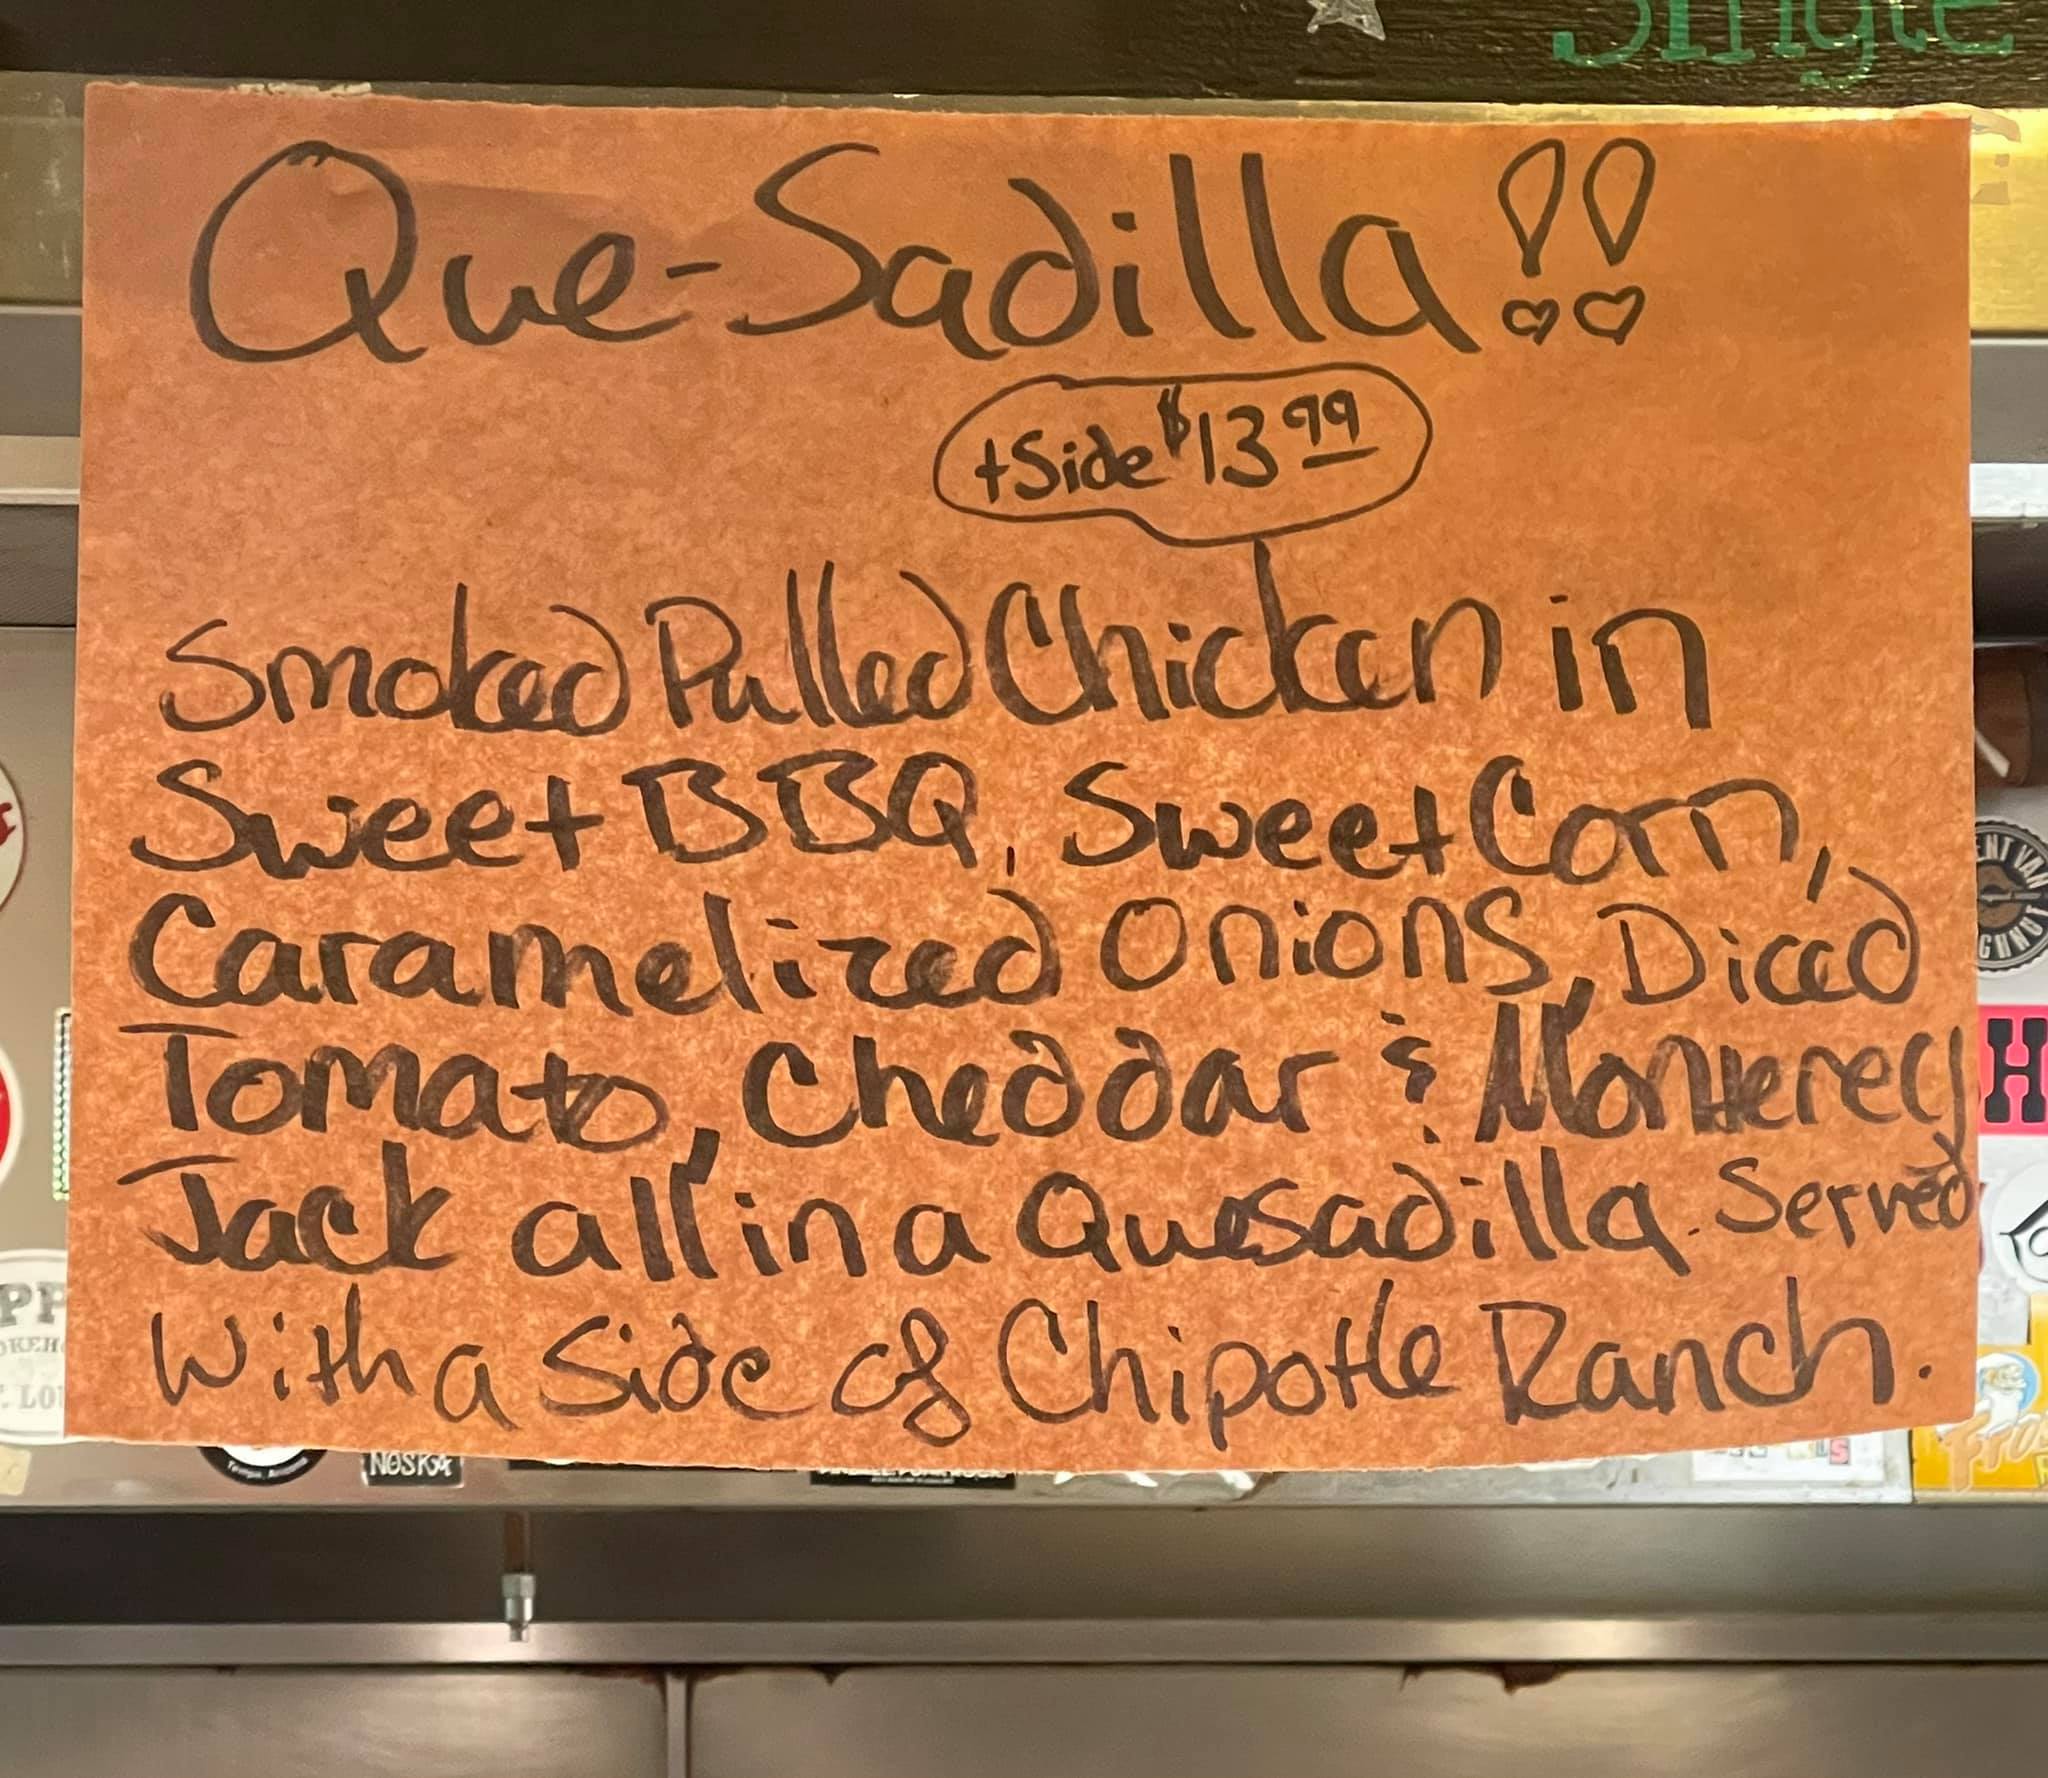 Single
Que-Sadilla!!
+Side $13.99
Smoked Pulled Chicken in
Sweet BBQ, Sweet Corn,
Caramelized Onions, Diced
Tomato, Cheddar & Monterey
Jack all in a Quesadilla. Served
With a Side of Chipotle Ranch.
H
NOSKA